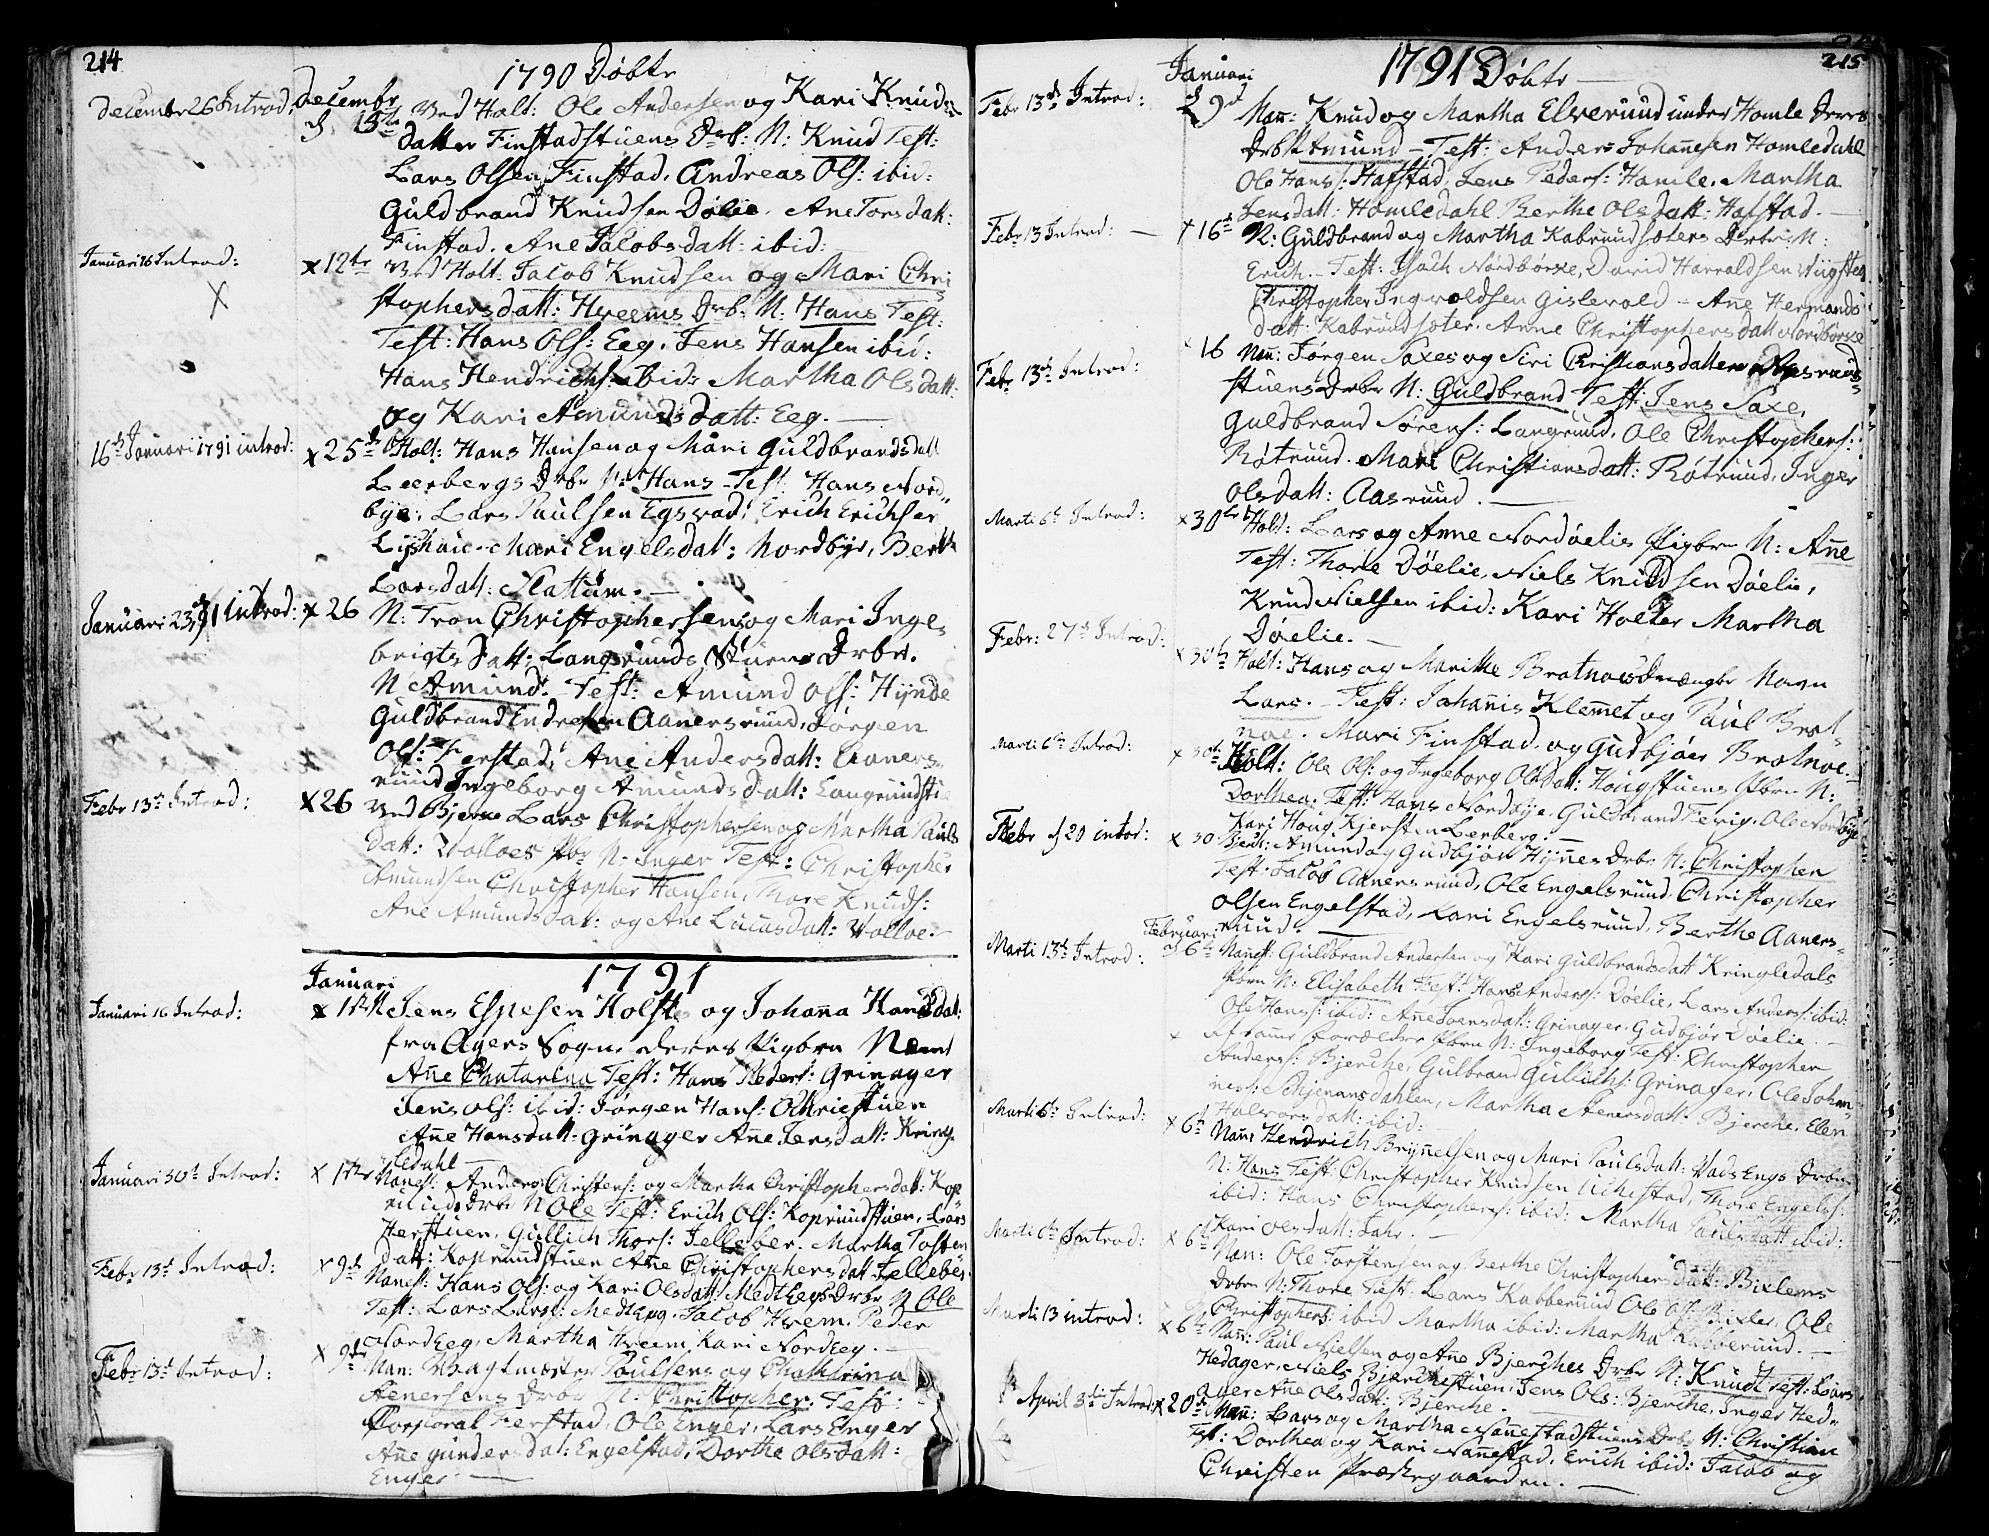 214
1790 Døbte
December 26 Introd: Decembr
d 15te Ved Holt: Ole Andersen og Kari Knuds
datter Finstadstuens Drb: N: Knud Test:
Lars Olsen Finstad, Andreas Ols: ibid:
Guldbrand Knudsen Dølie, Ane Torsdatt:
Finstad. Ane Jacobsdatt: ibid:
Januari 16 Introd: x 12te Ved Holt. Jacob Knudsen og Mari Chri
stophersdatt: Hveems Drb: N: Hans Test:
Test: Hans Ols: Eeg, Jens Hansen ibid:
Hans Hendrichs: ibid: Martha Olsdatt:
og Kari Amundsdatt: Eeg.
16de Januari 1791 introd: x 25de Holt: Hans Hansen og Mari Guldbrandsdatt
Leerbergs Drbr N: Hans - Test Hans Nord
bye, Lars Paulsen Egsrad, Erich Erichsen
Mari Engelsdatt: Nordbye, Berthe
Larsdatt: Slattum.
Januari 23 91 introd: x 26 N: Tron Christophersen og Mari Inge
brigtsdatt: Langsruuds Stuens Drbr.
N Amund. - Test: Amund Ols: Hynde
Guldbrand Endresen Aanersruud, Jørgen
Ols: Ferstad, Ane Andersdatt: Aaners
ruud Ingeborg Amundsdatt: Langruudstu
Febr 13de Introd: x 26 Ved Bjerke Lars Christophersen og Martha Pauls
datt: Wolloes Pbr N. Inger Test: Christopher
Amundsen Christopher Hansen, Thore Knuds:
Ane Amundsdatt: og Ane Lucasdatt: Wolloe.
1791
Januari
Januari 16 Introd: x 1ste N Jens Espesen Holst og Johanna Hansdat:
fra Agers Sogn deres Pigbrn Navn
Ane Chatarina Test: Hans Peders: Grinager
Jens Ols: ibid: Jørgen Hans:
Ane Hansdatt: Grinager Ane Jensdatt: Kring
ledahl
Januari 30te Introd: x 1ste Nanest: Anders Christens: og Martha Christophersdatt: Kop
ruuds Drbr N Ole Test: Erich Ols: Kopruudstuen, Lars
Herstuen, Gullich Thors: Jelleber. Martha Tosten
datt: Kopruudstuen Ane Christophersdatt Jellebøe.
Febr 13de Introd: x 9de Nanest: Hans Ols: og Kari Olsdatt: Medthegs Drbr N Ole
Test: Lars Larss: Jacob Hvem. Peder
NordEeg. Martha Hveem, Kari NordEeg.
Febr 13de Introd: x 9de Nan: Wagtmester Poulsens og Chatharina
Aenersens Drbr N: Christopher. Test:
Corporal Ferstad, Ole Enger, Lars Enger
Ane gunders dat: Engelstad, Dorthe Olsdatt:
Enger
215
Januari 1791 Døbte
Febr 13de Introd: 29d Nan: Knud og Martha Elverund under Homle Deres
Drb N Amund - Test: Anders Johanesen Homledahl
Ole Hanss: Hafstad, Jens Peders: Homle. Martha
Jensdatt: Homledahl Berthe Olsdatt: Hafstad.
Febr 13 Introd: x 16de N: Guldbrand og Martha Kabruudsæters Drbr: N:
Erich. - Test: Isach Nordbørxe, David Harraldsen Nygsted
Christopher Ingvoldsen Gislevold - Ane Hermands
datt: Kabruudsæter. Anne Christophersdatt Nordbørxe
Febr. 13de Introd: 16 Nan: Jørgen Saxes og Siri Christiansdatter Aasruds
stuens Drbr N: Guldbrand Test: Jens Saxe,
Guldbrand Sørens: Langruud, Ole Christophers:
Røtruud. Mari Christiansdatt: Røtruud, Inger
Olsdatt: Aasruud.
Marti 6te Introd: x 30te Holt: Lars og Anne Nordøelies Pigbrn N: Ane
Test: Thore Døelie, Niels Knudsen Døelie,
Knud Nielsen ibid: Kari Holter Martha
Døelie.
Febr: 27de Introd: x 30te Holt: Hans og Marithe Brotnoes Drængbr Navn
Lars. - Test: Johanis Klemmet og Paul Brot
noe. Mari Finstad og Gudbjør Brotnoe.
Marti 6te Introd: x 30te Holt: Ole Ols: og Ingeborg Olsdatt: Hougstuens Pbrn N:
Dorthea. Test: Hans Nordbye Guldbrand Ferig, Ole Nordbye
Kari Houg Kjersten Lerberg.
Febr d 20 introd: x 30 Bjerk: Amund og Gudbjør Hynnes Drbr N: Christopher
Test: Jacob Aanersruud, Ole Engelsruud, Christopher
Olsen Engelstad, Kari Engelsruud, Berthe Aaners
ruud.
Februari
Marti 13de Introd: d 6te Nanest: Guldbrand Andersen og Kari Guldbrandsdatt Kringledals
Pbrn N: Elisabeth Test: Hans Anders: Døelie, Lars Anders: ibid:
Ole Hans: ibid: Ane Jensdatt: Grinager, Gudbjør Døelie.
x Forældre Pbrn N: Ingeborg Test: Christopher
Anders: Bjerche, Gulbrand Gullichs: Grinager, Ole Johan
nes: Martha Stenersdatt: Bjerche, Elen
Halvorsdatt: ibid:
Marti 6te Introd: x 6te Nan: Hendrich Brynnelsen og Mari Paulsdatt: Vads Engs Drbrn
N: Hans Test: Christopher Knudsen Uchestad, Thore Engels:
ibid: Hans Christophers: ibid: Martha Paulsdatt ibid:
Kari Olsdatt:
Marti 6te Introd: x 6te Nan: Ole Torstensen og Berthe Christophersdatt: Bixlems
Drbrn N: Thore Test: Lars Kabberuud Ole Ols: Bixler, Ole
Christophers: ibid Martha ibid: Martha Kabberuud.
Marti 13 introd: x 6te Nan: Paul Nielsen og Ane Bjerches Drbr N: Knudt Test: Lars
Hedager, Niels Bjerchestuen, Jens Ols: Bjerche, Inger Hed
ager Ane Olsdatt: Bjerche.
April 3de Introd: x 20de Nan: Lars og Martha Nanestadstuens Drbr N: Christian
Test: Dorthea og Kari Nannestad, Erich ibid: Jacob og
Christen Præstegaarden.